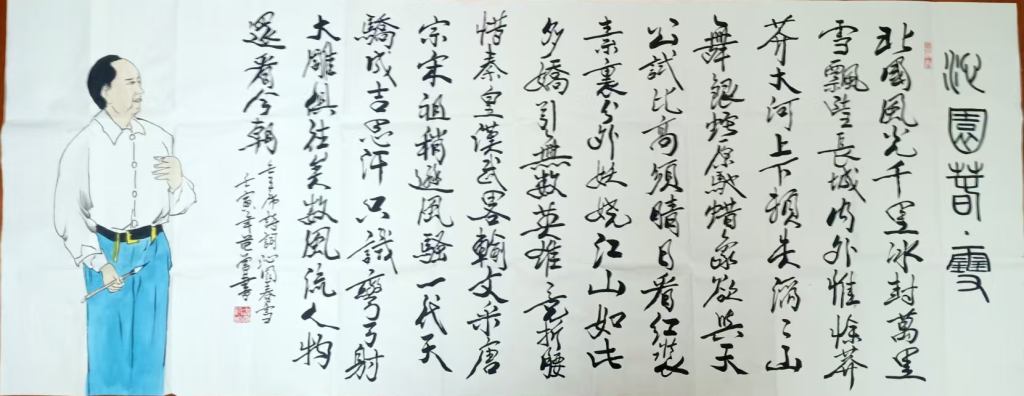 沁園春·雪
北國風光千里冰封萬里
雪飄望長城內外惟餘莽
莽大河上下頓失滔ミ山
舞銀蛇原馳蜡象欲與天
公試比高須晴日看紅裝
素裹分外妖娆江山如此
多嬌引無數英雄竞折腰
惜秦皇漢武畧輸文采唐
宗宋祖稍遜風騷一代天
驕成吉思汗只識彎弓射
大雕俱往矣数風流人物
還看今朝
毛主席詩詞沁園春雪
壬寅年書